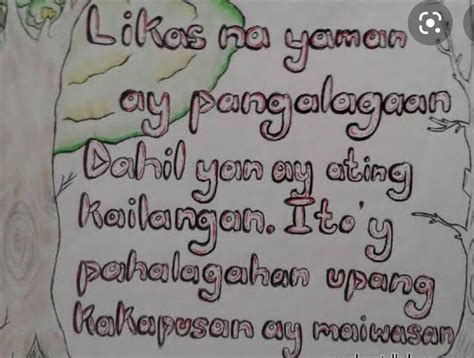 Likas na yaman
ay pangalagaan
Dahil yan ay ating
Kailangan. Ito'y
pahalagahan upang
Kakapusan ay maiwasan